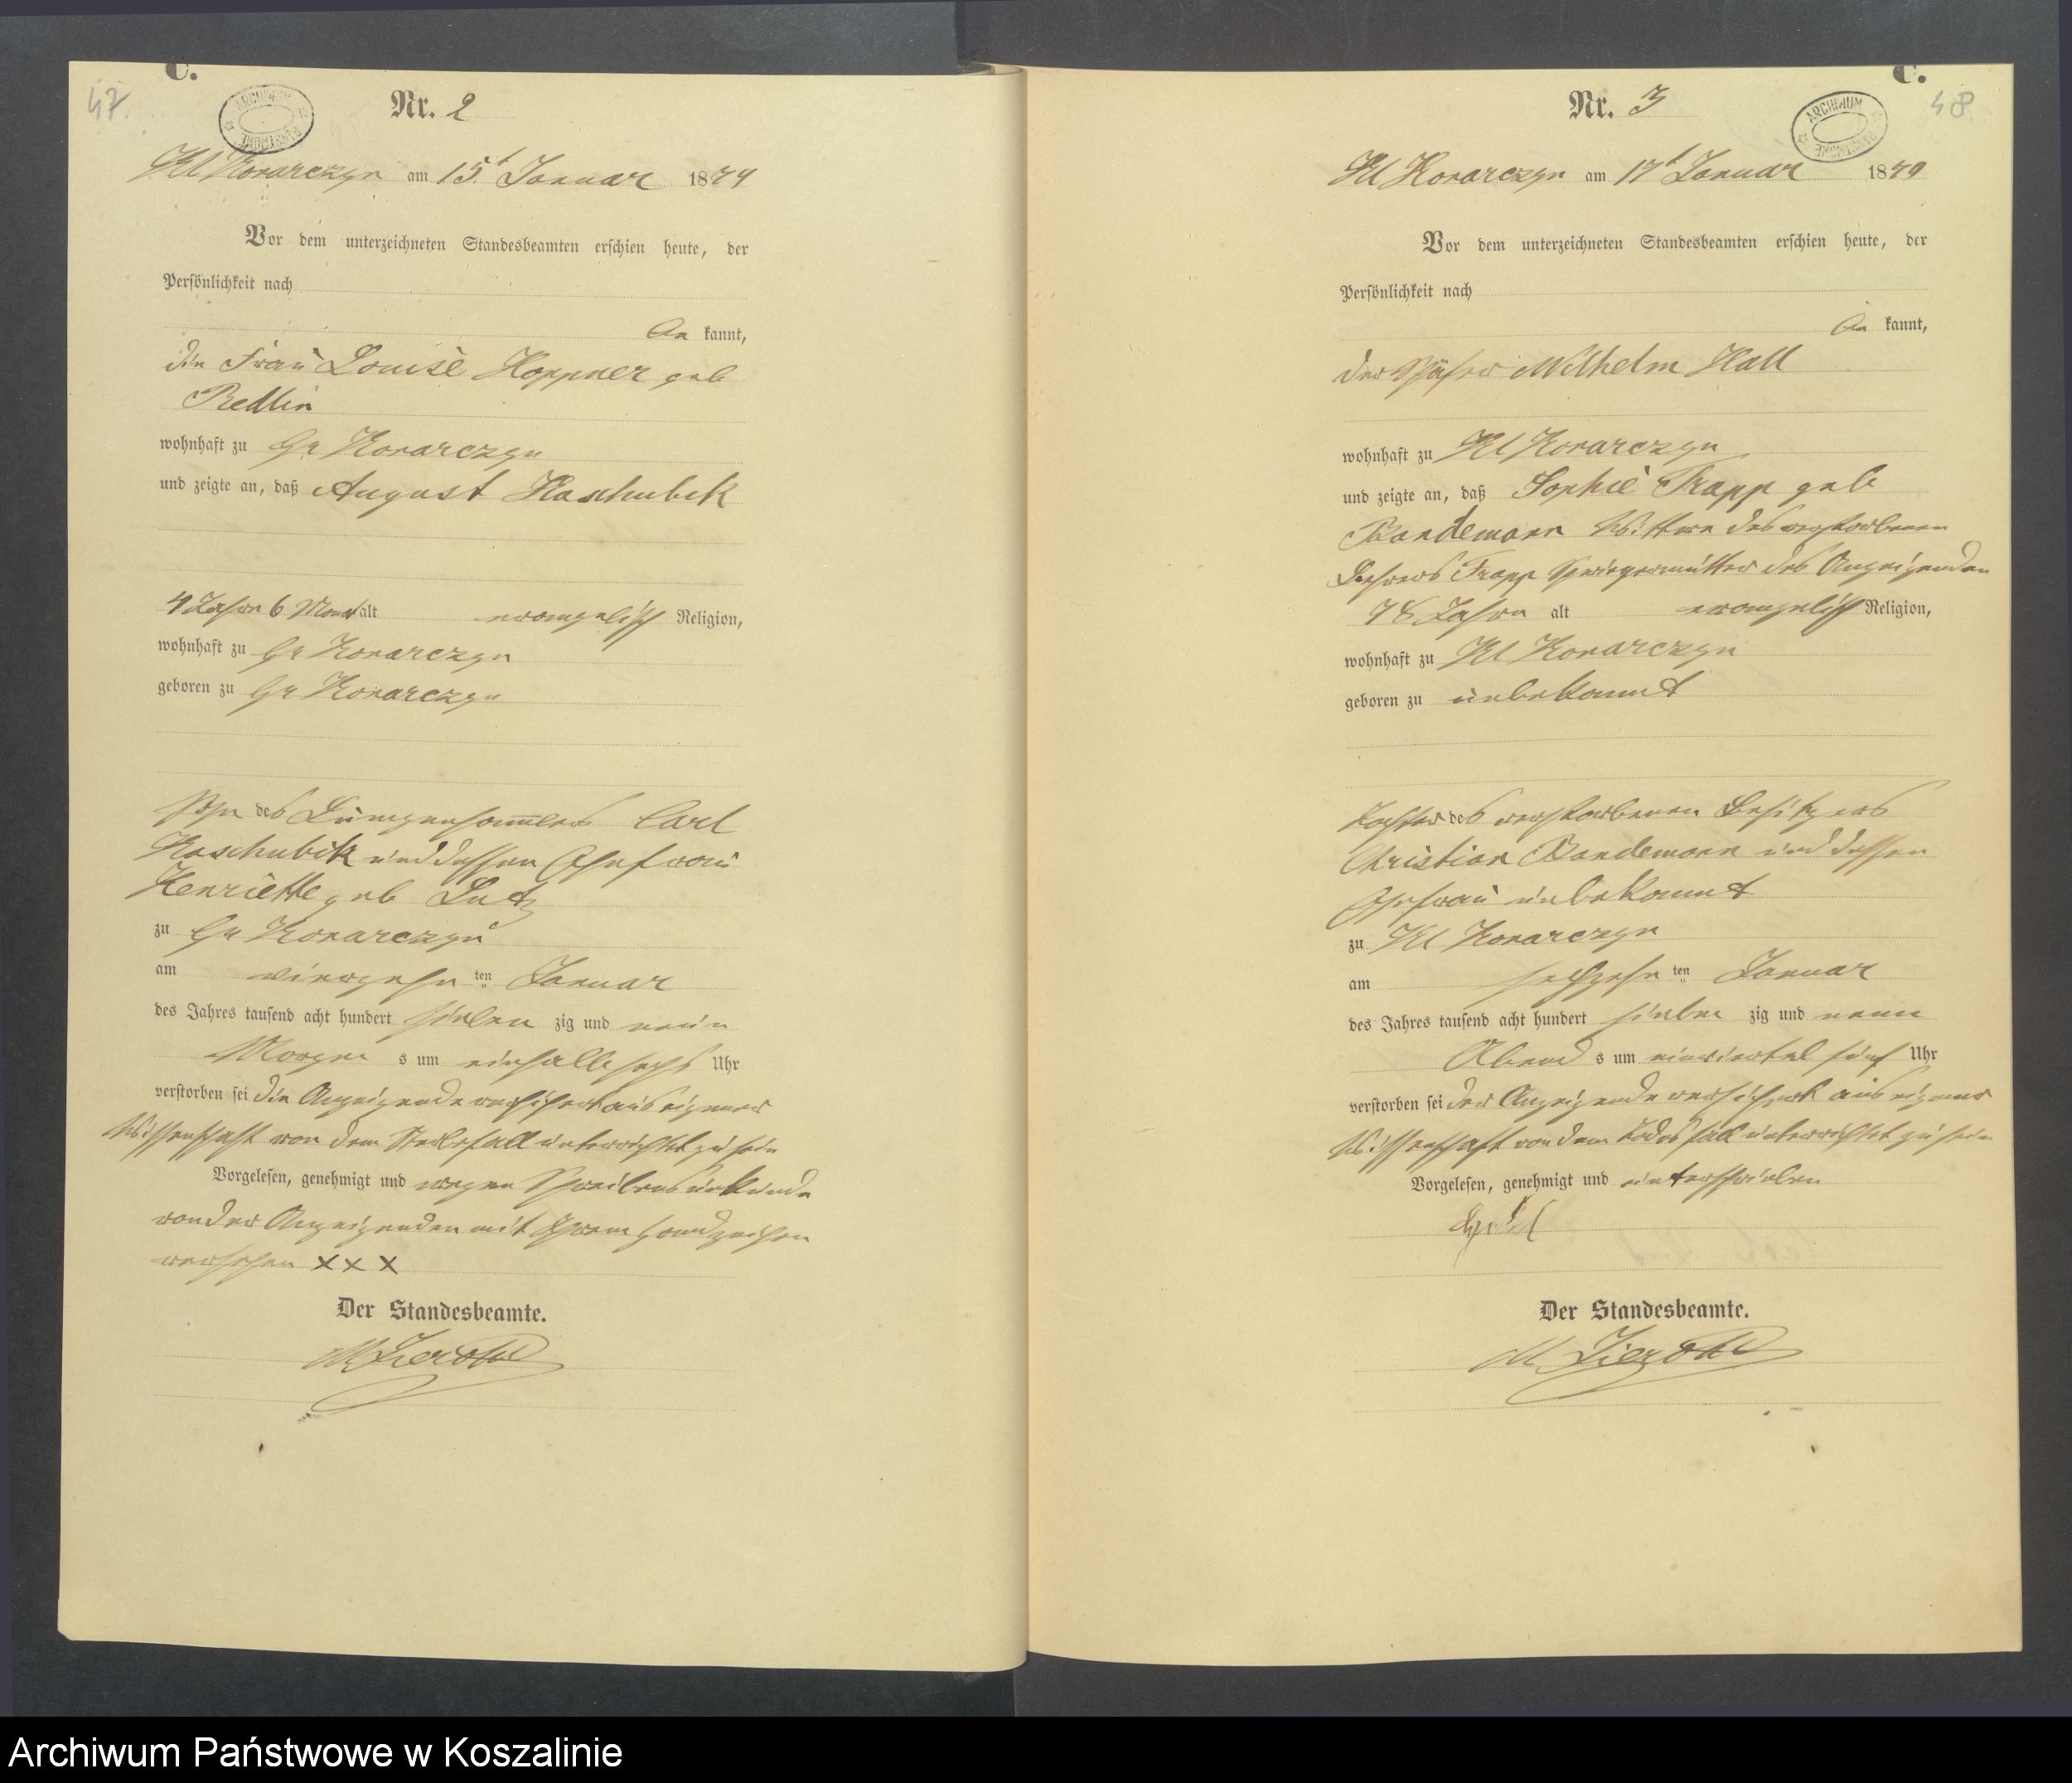 C.
47.
ARCHIWUM PAŃSTWOWE
Nr. 2
Kl Konarczyn am 15t Januar 1879
Vor dem unterzeichneten Standesbeamten erschien heute, der
Persönlichkeit nach
be kannt,
die Frau Louise Hoppner geb
Redlin
wohnhaft zu Gr Konarczyn
und zeigte an, daß August Kaschubek
4 Jahre 6 Monat alt evangelisch Religion,
wohnhaft zu Gr Konarczyn
geboren zu Gr Konarczyn
Sohn des Lumpensammlers Carl
Kaschubek und dessen Ehefrau
Henriette geb Lutz
zu Gr Konarczyn
am vierzehn ten Januar
des Jahres tausend acht hundert sieben zig und neun
Morgen s um einhalb sechs Uhr
verstorben sei die Anzeigende versichert aus eigener
Wissenschaft von dem Sterbefall unterrichtet zu sein
Vorgelesen, genehmigt und wegen Schreibensunkunde
von der Anzeigenden mit Ihrem Handzeichen
versehen X X X
Der Standesbeamte.
C.
48
ARCHIWUM PAŃSTWOWE
Nr. 3
Kl Konarczyn am 17t Januar 1879
Vor dem unterzeichneten Standesbeamten erschien heute, der
Persönlichkeit nach
be kannt,
der Schäfer Wilhelm Kall
wohnhaft zu Kl Konarczyn
und zeigte an, daß Sophie Trapp geb
Bandemann Wittwe des verstorbenen
Lehrers Trapp Schwiegermutter des Anzeigenden
78 Jahre alt evangelisch Religion,
wohnhaft zu Kl Konarczyn
geboren zu unbekannt
Tochter des verstorbenen Besitzers
Christian Bandemann und dessen
Ehefrau unbekannt
zu Kl Konarczyn
am sechzehn ten Januar
des Jahres tausend acht hundert sieben zig und neun
Abend s um einviertel fünf Uhr
verstorben sei der Anzeigende versichert aus eigener
Wissenschaft von dem Todesfall unterrichtet zu sein
Vorgelesen, genehmigt und unterschrieben
Der Standesbeamte.
Archiwum Państwowe w Koszalinie